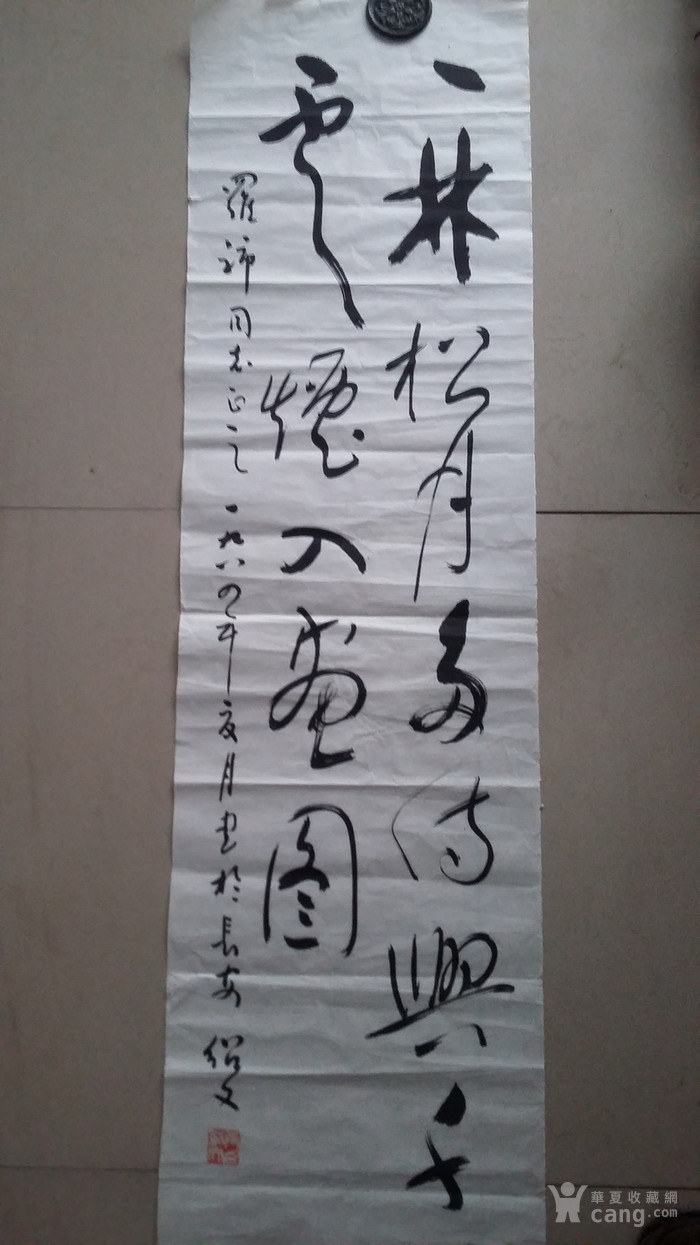 一林松月多诗興千
雲煙入畫图
羅 同志正之 一九八四年夏月书於長安 绍文
華夏收藏網
cang.com